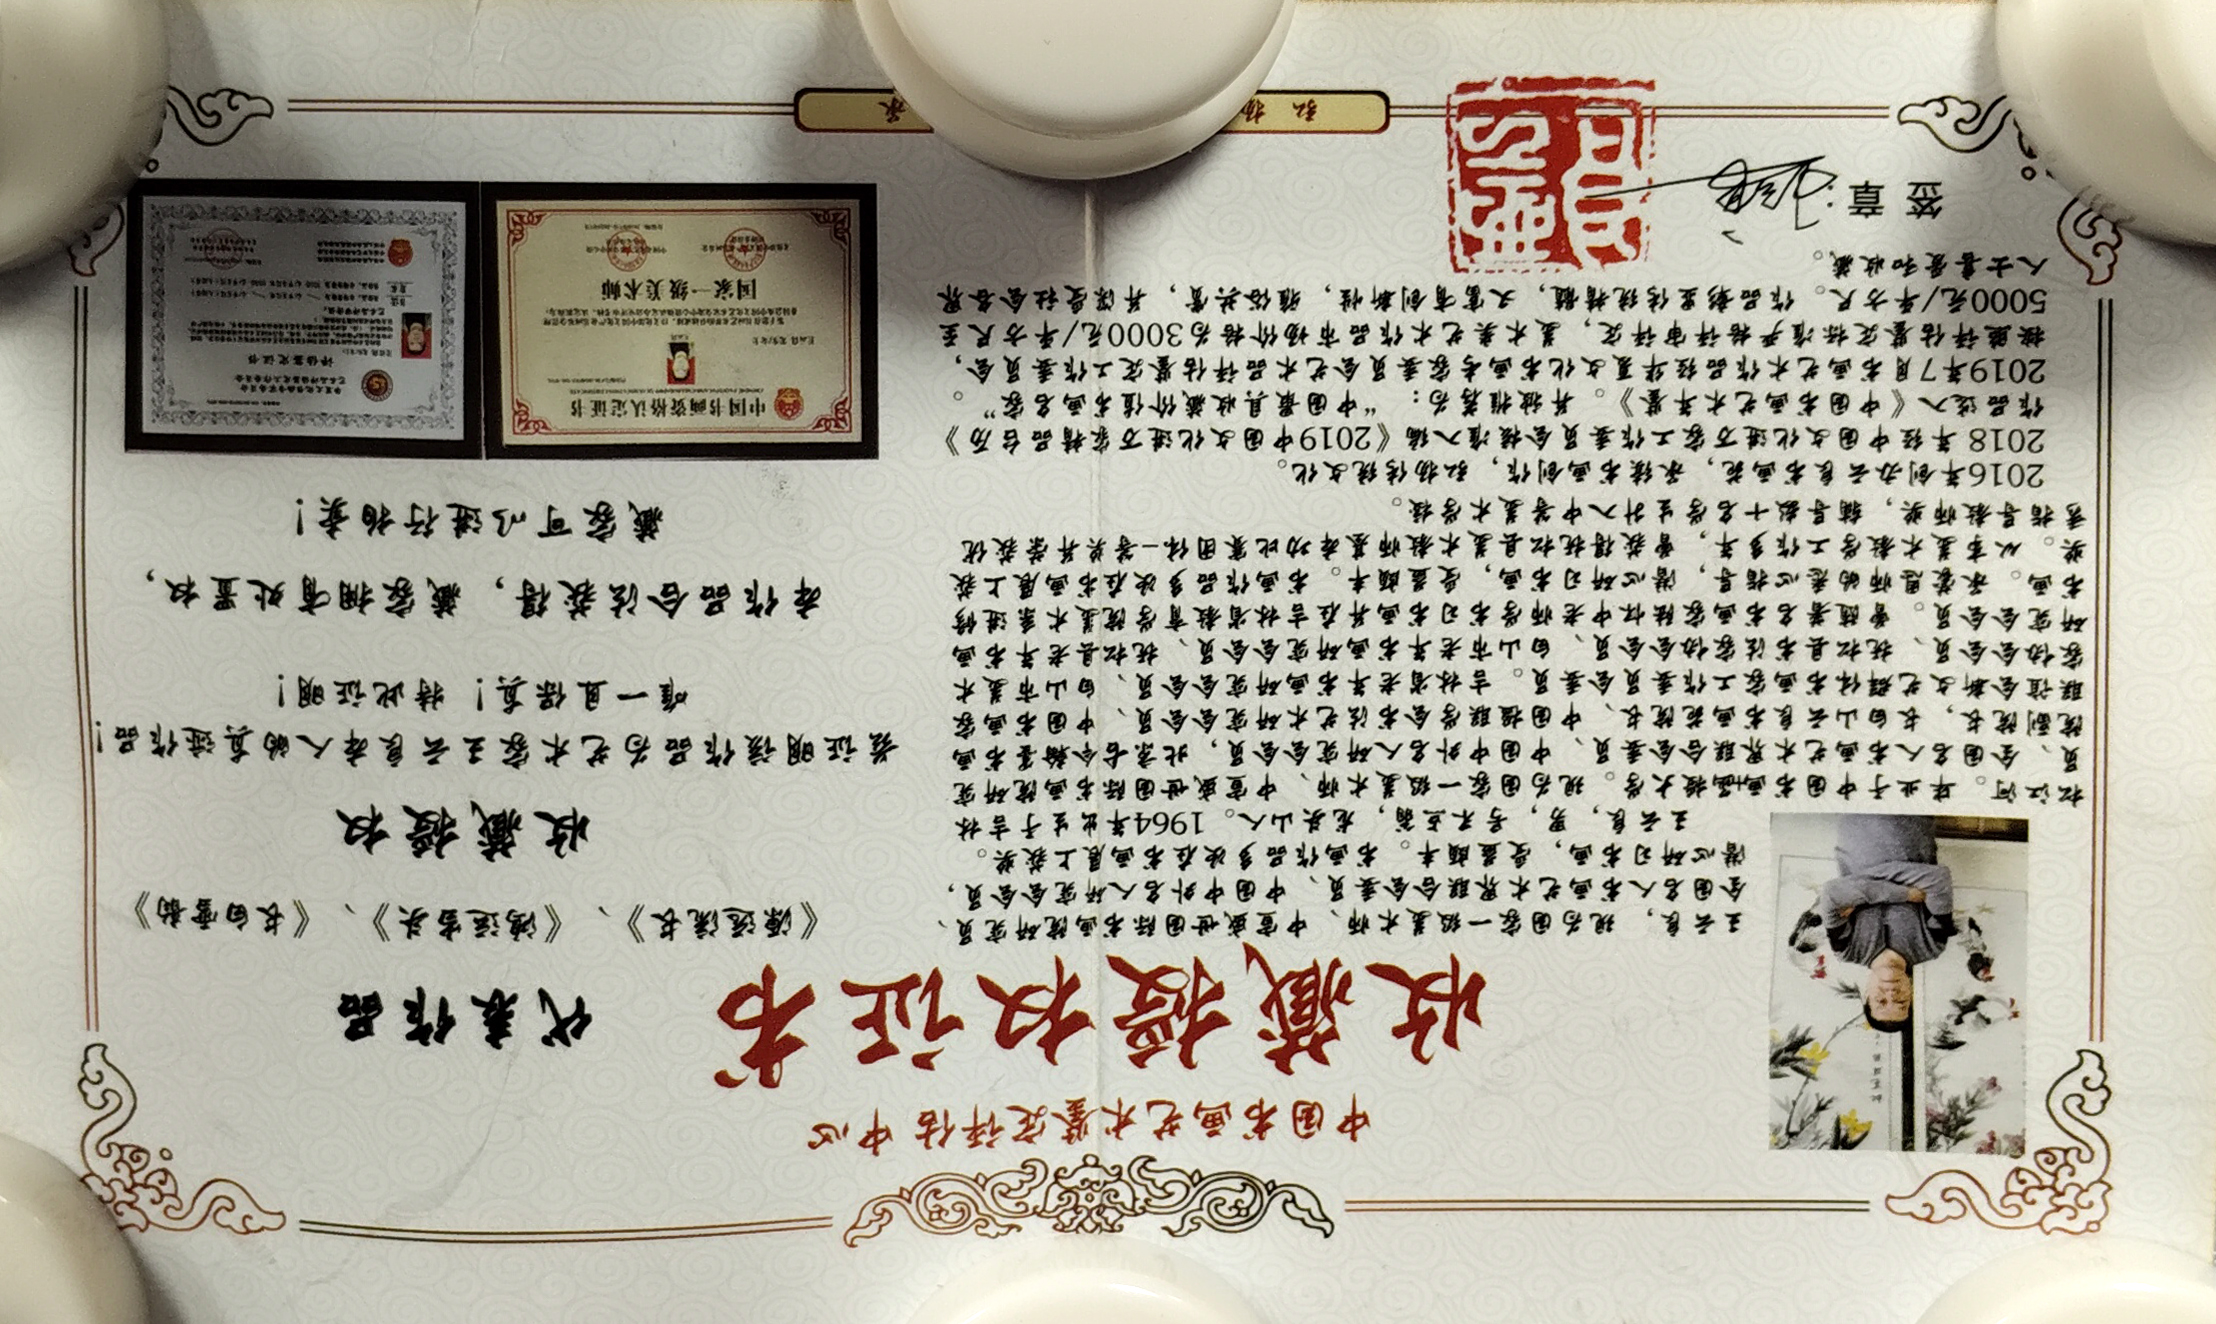 中国书画艺术鉴定评估中心
收藏授权证书
王云良，现为国家一级美术师、中宣盛世国际书画院研究员、
全国名人书画艺术界联合会委员、中国中外名人研究会会员，
潜心研习书画，受益颇丰。书画作品多次在书画展上获奖。
王云良，男，号禾豆翁，龙头山人。1964年出生于吉林
松江河。毕业于中国书画函授大学。现为国家一级美术师、中宣盛世国际书画院研究
员、全国名人书画艺术界联合会委员、中国中外名人研究会会员，北京古今翰墨书画
院副院长，长白山云良书画苑院长、中国楹联学会书法艺术研究会会员、中国书画家
联谊会新文艺群体书画家工作委员会委员。吉林省老年书画研究会会员、白山市美术
家协会会员、抚松县书法家协会会员、白山市老年书画研究会会员、抚松县老年书画
研究会会员。曾随著名书画家陈怀中老师学书习画并在吉林省教育学院美术系进修
书画。承蒙恩师的悉心指导，潜心研习书画，受益颇丰。书画作品多次在书画展上获
奖。从事美术教学工作多年，曾获得抚松县美术教师基本功比赛团体一等奖并荣获优
秀指导教师奖，辅导数十名学生升入中等美术学校。
2016年创办云良书画苑，承续书画创作，弘扬传统文化。
2018 年经中国文化进万家工作委员会核准入编《2019中国文化进万家精品台历》
作品选入《中国书画艺术年鉴》。并被推荐为：“中国最具收藏价值书画名家”。
2019年7月书画艺术作品经华夏文化书画专家委员会艺术品评估鉴定工作委员会，
按照评估鉴定标准严格评审评定，美术类艺术作品市场价格为3000元/平方尺至
5000元/平方尺。作品彰显传统精髓，又富有创新性，雅俗共赏，并深受社会各界
人士喜爱和收藏。
签章：
代表作品
《源远流长》、《鸿运当头》、《长白雪韵》
收藏授权
兹证明该作品为艺术家王云良本人的真迹作品！
唯一且保真！特此证明！
本作品合法获得，藏家拥有处置权，
藏家可以进行拍卖！
中国书画资格认定证书
国家一级美术师
艺术品评估鉴定工作委员会
评估鉴定证书
弘扬
承